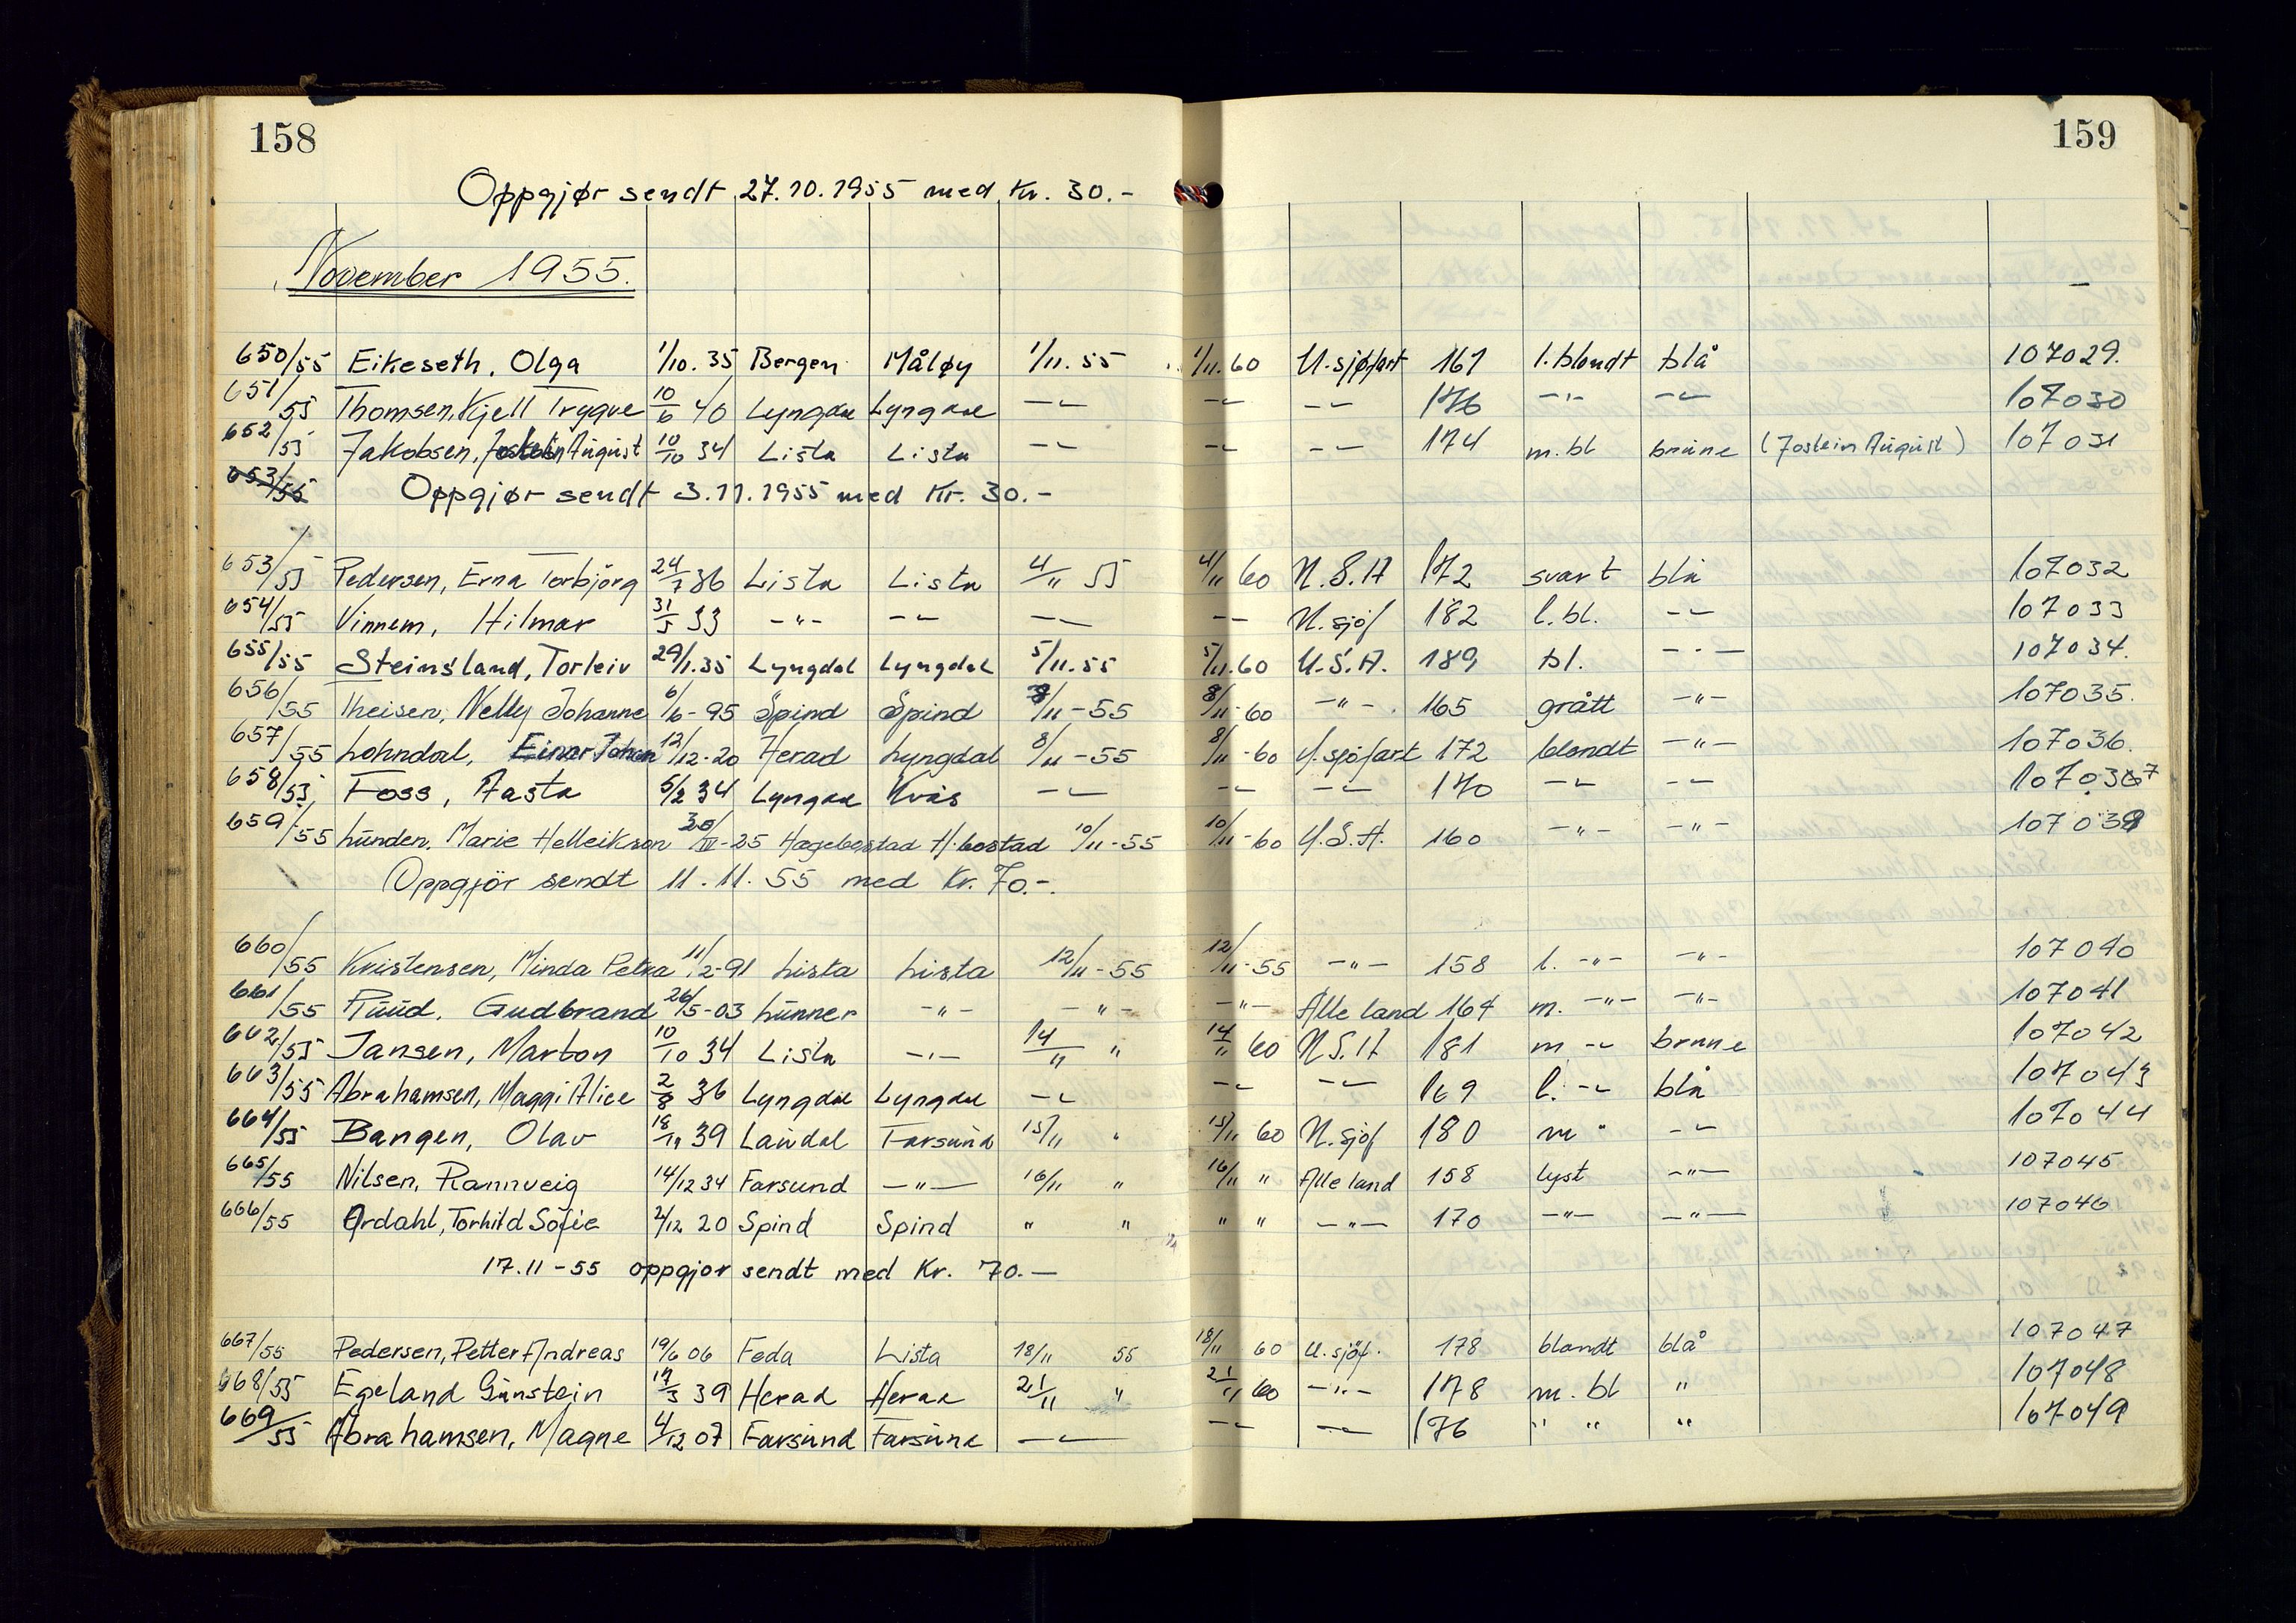 158 159
Oppgjør sendt 27.10.1955 med Kr. 30.-
November 1955.
650/55 Eikeseth, Olga 1/10. 35 Bergen Måløy 1/11. 55 1/11. 60 U.sjøfart 161 l. blondt blå 107029.
651/55 Thomsen, Kjell Trygve 10/6 40 Lyngdal Lyngdal -"- -"- -"- 176 -"- -"- 107030
652/55 Jakobsen, August 10/10 34 Lista Lista -"- -"- -"- 174 m. bl brune (Jostein August) 107031
653/55 Oppgjør sendt 3.11.1955 med Kr. 30.-
653/55 Pedersen, Erna Torbjörg 24/7 36 Lista Lista 4/11 55 4/11 60 U.S.A 172 svart blå 107032
654/55 Vinnem, Hilmar 31/5 33 -"- -"- -"- -"- U.sjöf 182 l. bl. -"- 107033
655/55 Steinsland, Torleiv 29/1. 35 Lyngdal Lyngdal 5/11. 55 5/11. 60 U.S.A. 189 bl. -"- 107034.
656/55 Theisen, Nelly Johanne 6/6 - 95 Spind Spind 8/11 - 55 8/11 - 60 -"- 165 grått -"- 107035.
657/55 Lohndal, Einar Johan 12/12 - 20 Herad Lyngdal 8/11 - 55 8/11 - 60 U.sjöfart 172 blondt -"- 107036.
658/55 Foss, Aasta 5/2 34 Lyngdal Kvås -"- -"- -"- 170 -"- -"- 107037
659/55 Lunden, Marie Helleikson - 25 Hægebostad H.bostad 10/11 - 55 10/11 - 60 U.S.A. 160 -"- -"- 107039
Oppgjör sendt 11. 11. 55 med Kr. 70.-.
660/55 Kristensen, Minda Petra 11/2 - 91 Lista Lista 12/11 - 55 12/11 - 55 -"- 158 l. -"- -"- 107040
661/55 Ruud, Gudbrand 26/5 - 03 Lunner -"- -"- -"- Alle land 164 m. -"- -"- 107041
662/55 Jansen, Marton 10/10 34 Lista -"- 14/11 " 14/11 60 U.S.A 181 m -"- brune 107042
663/55 Abrahamsen, Maggi Alice 2/8 36 Lyngdal Lyngdal -"- -"- -"- 169 l. -"- blå 107043
664/55 Bangen, Olav 39 Laudal Farsund 15/11 " 15/11 60 U.sjöf 180 m " -"- 107044
665/55 Nilsen, Rannveig 14/12 34 Farsund -"- 16/11 " 16/11 " Alle land 158 lyst -"- 107045
666/55 Ordahl, Torhild Sofie 2/12 20 Spind Spind " " " " -"- 170 -"- -"- 107046
17.11 - 55 oppgjor sendt med Kr. 70.-
667/55 Pedersen, Petter Andreas 19/6 06 Feda Lista 18/11 55 18/11 60 U.sjöf. 178 blondt blå 107047
668/55 Egeland Gunstein 17/3 39 Herad Herad 21/11 " 21/11 60 -"- 178 m. bl " 107048
669/55 Abrahamsen, Magne 4/12 07 Farsund Farsund -"- -"- -"- 176 " " " 107049